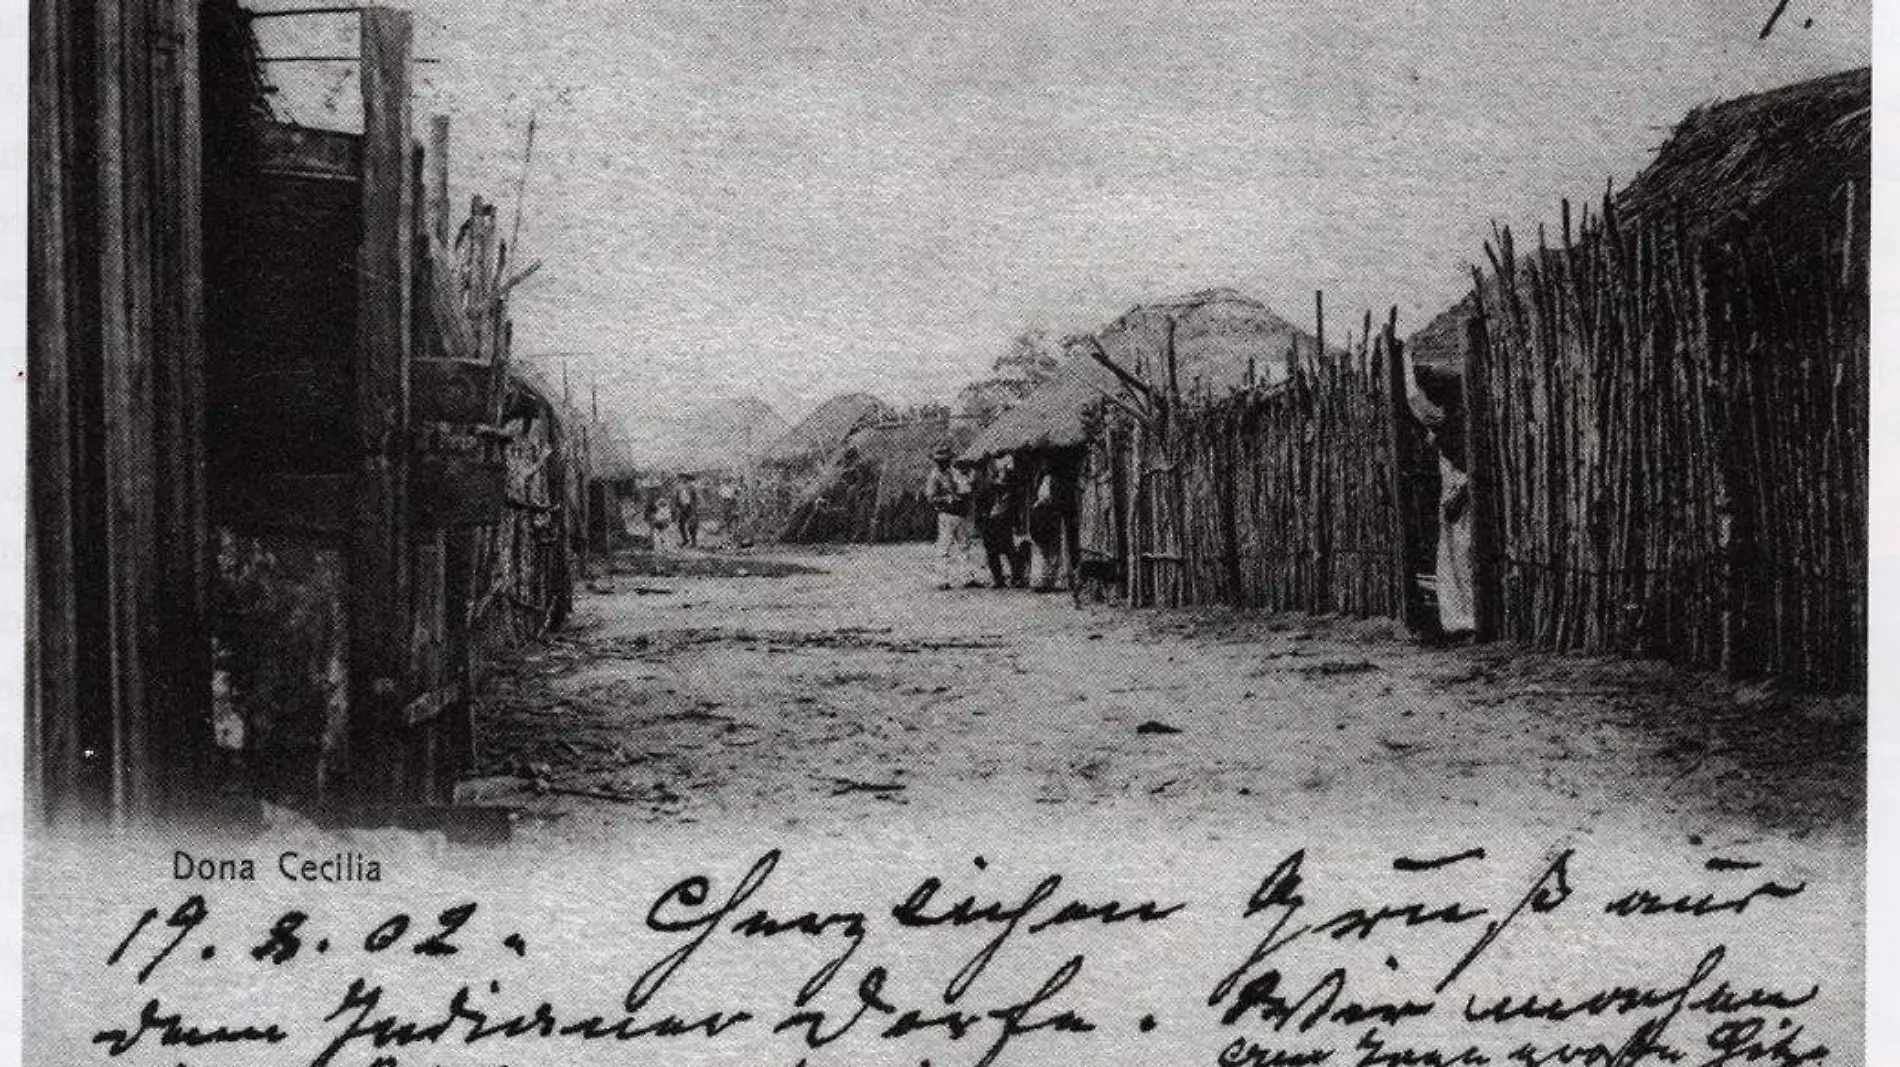 Dona Cecilia
19. 2. 02. Herzlichen Gruß aus
dem Indianer Dorfe. Wir machen
große Hitze